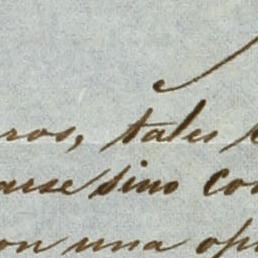 ros, tales
arse sino co
on una op